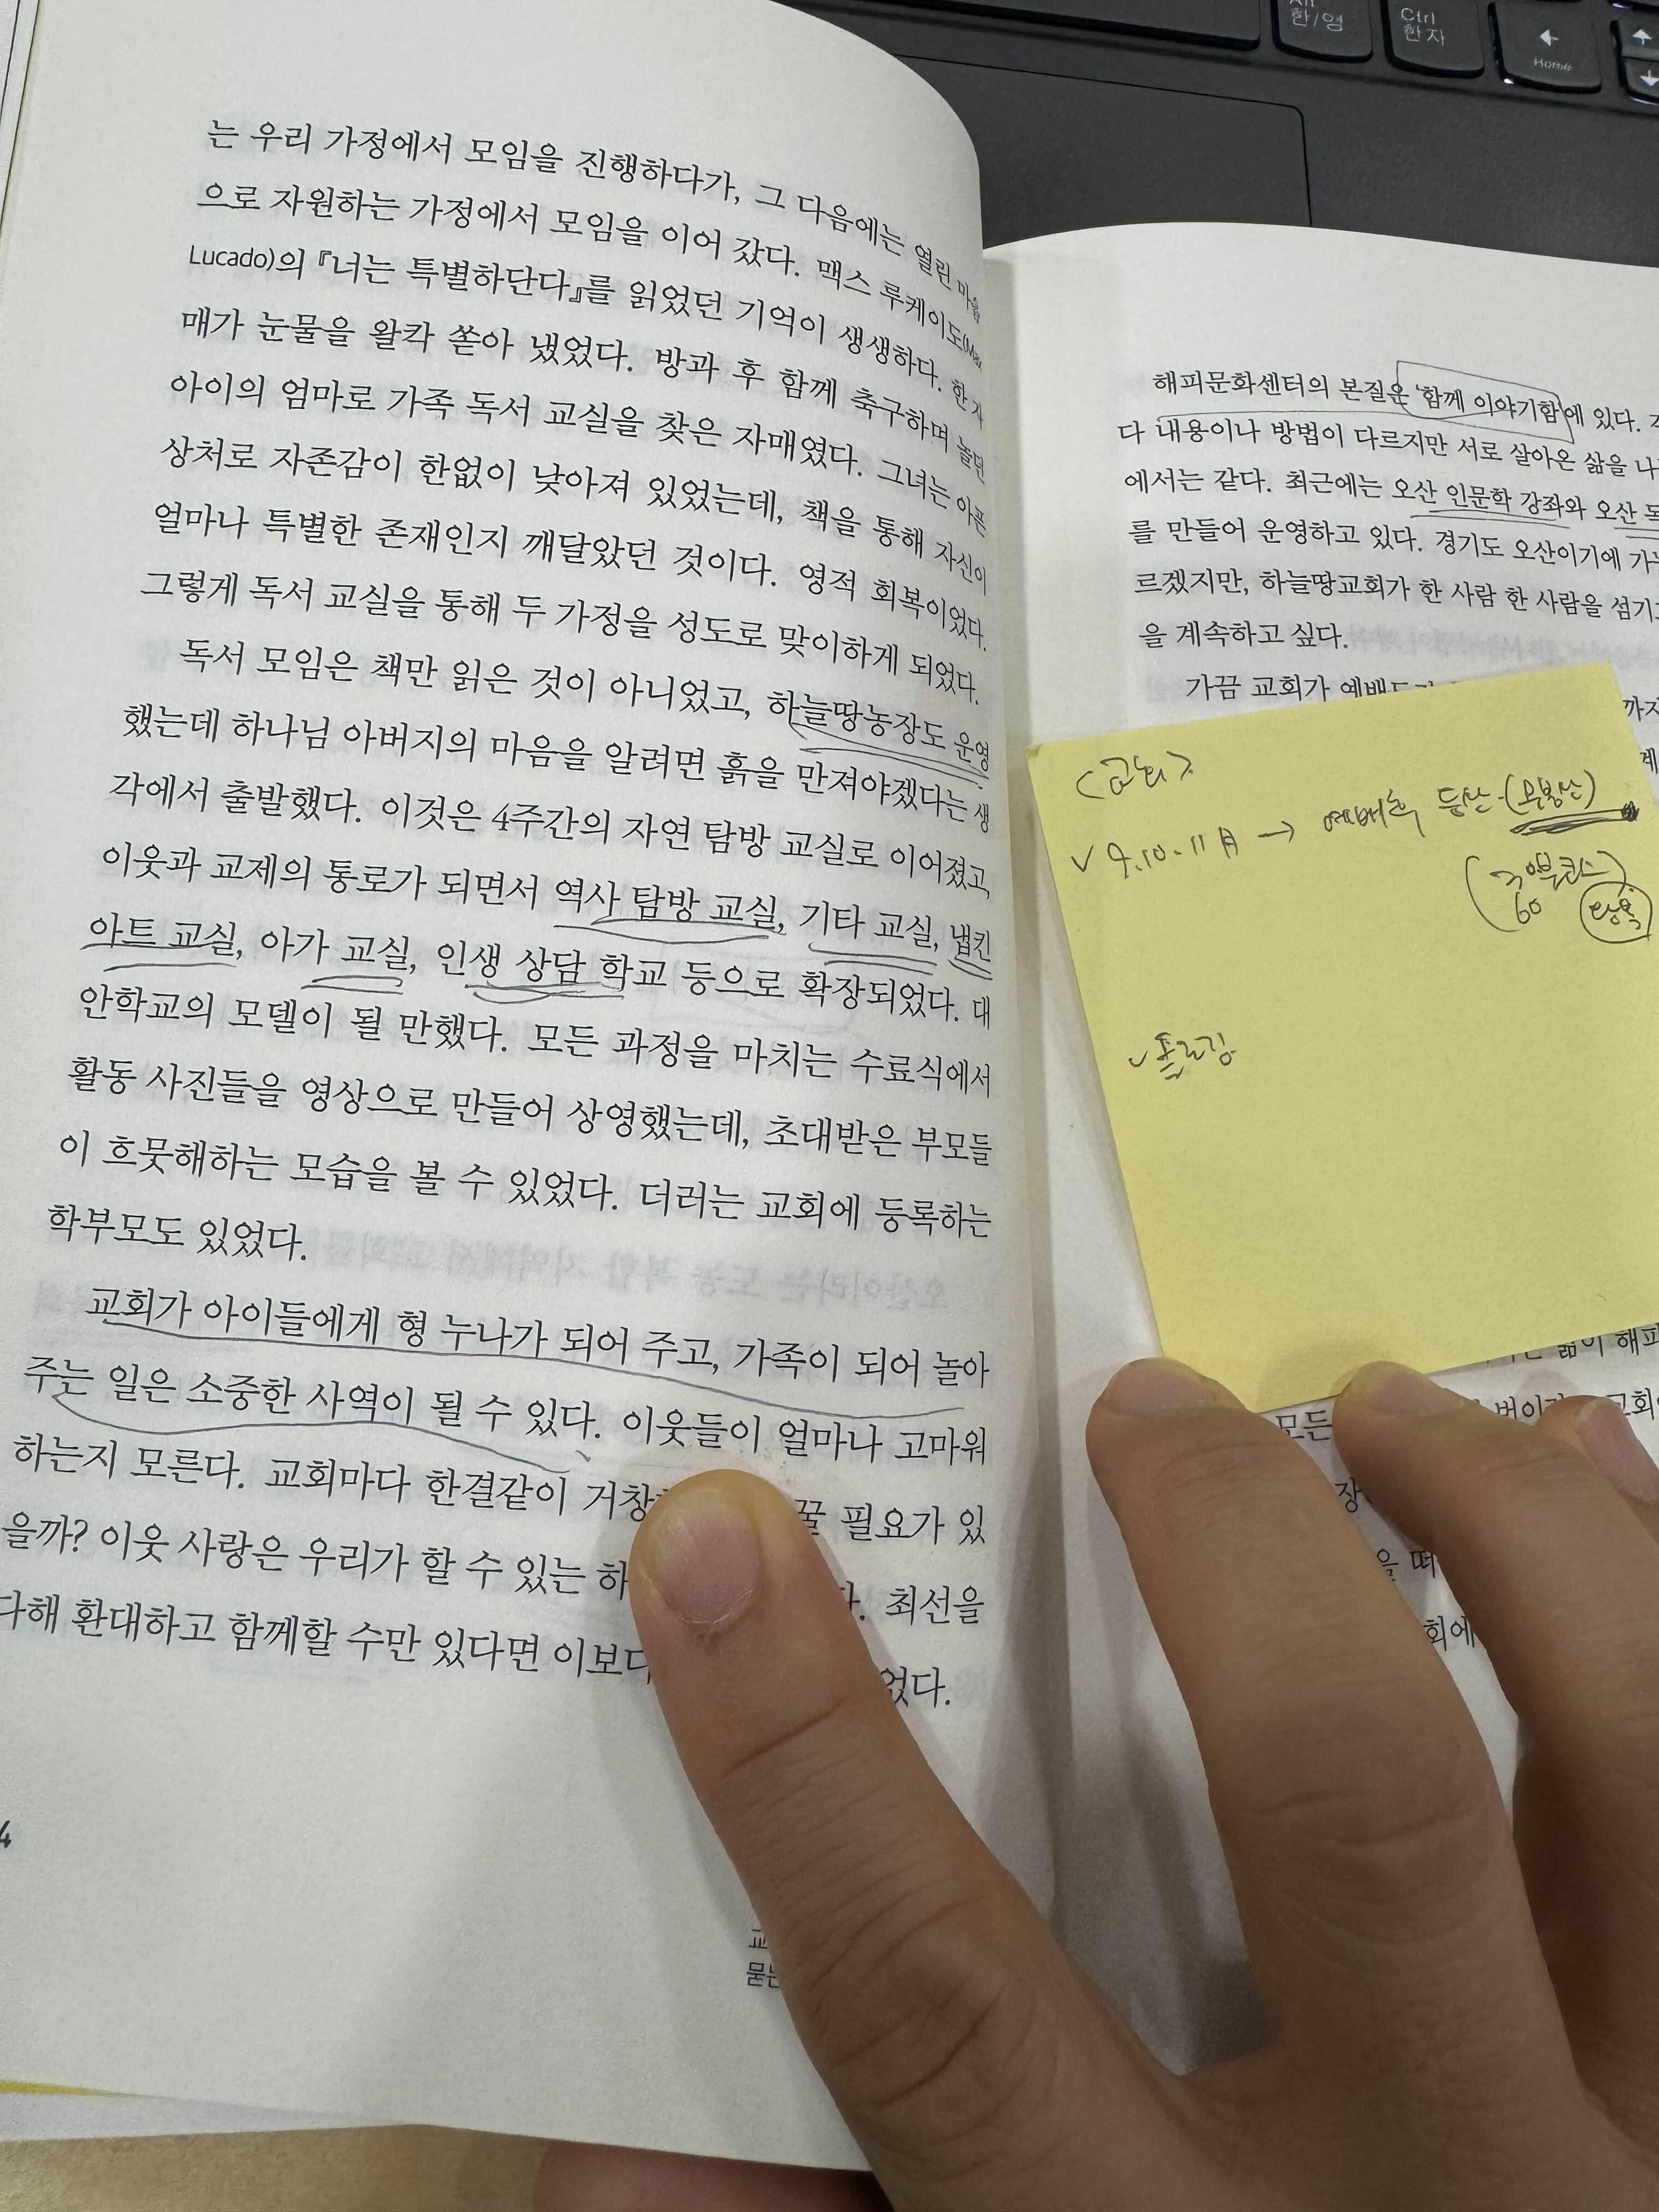 는 우리 가정에서 모임을 진행하다가, 그 다음에는 열린 마음
으로 자원하는 가정에서 모임을 이어 갔다. 맥스 루케이도(Max
Lucado)의 『너는 특별하단다』를 읽었던 기억이 생생하다. 한 자
매가 눈물을 왈칵 쏟아 냈었다. 방과 후 함께 축구하며 놀던
아이의 엄마로 가족 독서 교실을 찾은 자매였다. 그녀는 아픈
상처로 자존감이 한없이 낮아져 있었는데, 책을 통해 자신이
얼마나 특별한 존재인지 깨달았던 것이다. 영적 회복이었다.
그렇게 독서 교실을 통해 두 가정을 성도로 맞이하게 되었다.
독서 모임은 책만 읽은 것이 아니었고, 하늘땅농장도 운영
했는데 하나님 아버지의 마음을 알려면 흙을 만져야겠다는 생
각에서 출발했다. 이것은 4주간의 자연 탐방 교실로 이어졌고,
이웃과 교제의 통로가 되면서 역사 탐방 교실, 기타 교실, 냅킨
아트 교실, 아가 교실, 인생 상담 학교 등으로 확장되었다. 대
안학교의 모델이 될 만했다. 모든 과정을 마치는 수료식에서
활동 사진들을 영상으로 만들어 상영했는데, 초대받은 부모들
이 흐뭇해하는 모습을 볼 수 있었다. 더러는 교회에 등록하는
학부모도 있었다.
교회가 아이들에게 형 누나가 되어 주고, 가족이 되어 놀아
주는 일은 소중한 사역이 될 수 있다. 이웃들이 얼마나 고마워
하는지 모른다. 교회마다 한결같이 거창 꿀 필요가 있
을까? 이웃 사랑은 우리가 할 수 있는 하 최선을
다해 환대하고 함께할 수만 있다면 이보다 었다.
4
해피문화센터의 본질은 '함께 이야기함'에 있다.
다 내용이나 방법이 다르지만 서로 살아온 삶을
에서는 같다. 최근에는 오산 인문학 강좌와 오산
를 만들어 운영하고 있다. 경기도 오산이기에
르겠지만, 하늘땅교회가 한 사람 한 사람을
을 계속하고 싶다.
가끔 교회가 까지
<교회>
✓ 9.10.11月 → 예배후 등산-
60
모든 교회
회에
Alt 한/영
Ctrl 한자
← Home
↑
↓